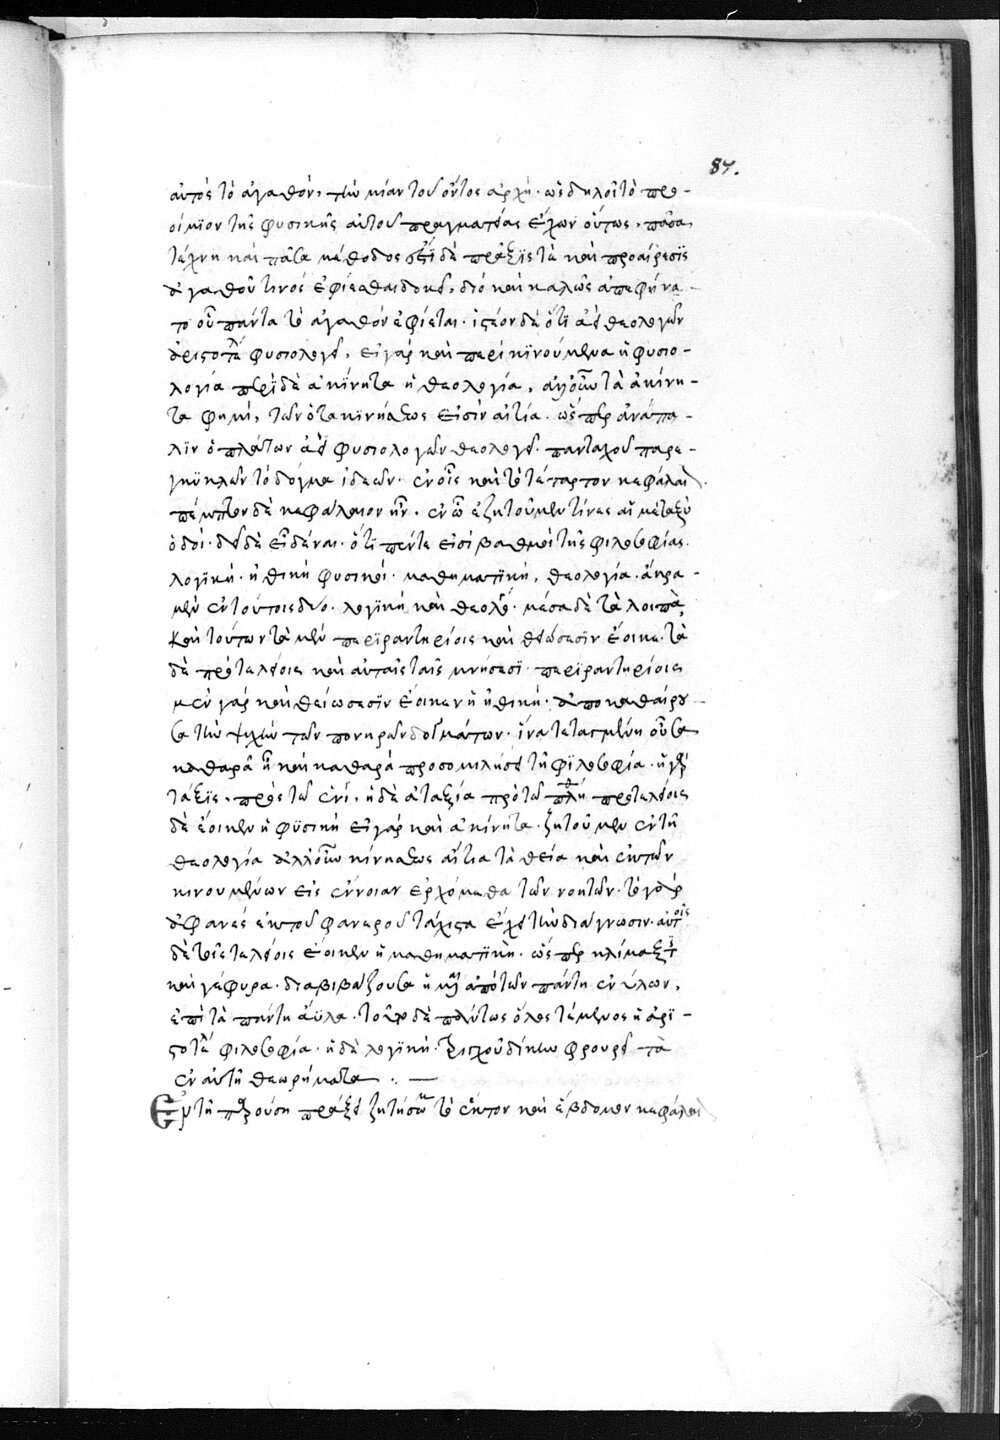 87.
αὐτὸς τὸ ἀγαθόν, τὴν μίαν τοῦ ὄντος ἀρχή· ὡς δηλοῖ τὸ προ-
οίμϊον τῆς φυσικῆς αὐτοῦ πραγματείας ἔχων οὕτως, πᾶσα
τέχνη καὶ πᾶσα μέθοδος δὲ πρᾶξϊς τὲ καὶ προαίρεσϊς
ἀγαθοῦ τινός ἐφίεσθαι δοκεῖ, διό καὶ καλῶς ἀπεφήνα-
το οὗ πάντα τὸ ἀγαθόν ἐφίεται· ἰστέον δὲ ὅτι ἀεὶ θεολογῶν
ἀριστοτέλης φυσιολογεῖ, εἰ γάρ καὶ περὶ κϊνούμενα ἡ φυσιο-
λογία περὶ δὲ ἀκίνητα ἡ θεολογία, ἀλλ' οὖν τὰ ἀκίνη-
τα φησὶ, τῶν ὅτε κϊνήσεως εἰσὶν αἰτία· ὥσπερ ἀνάπα-
λϊν ὁ πλάτων ἀεὶ φυσιολογῶν θεολογεῖ· πανταχοῦ παρε-
γκϋκλῶν τὸ δόγμα ἰδεῶν· ἐν οἷς καὶ τὸ τέταρτον κεφάλαι
πέμπτον δὲ κεφάλαιον ἦν· ἐν ᾧ ἐζητοῦμεν τίνες αἱ μεταξὺ
ὁδοί· δεῖ δὲ εἰδέναι· ὅτι πέντε εἰσὶ βαθμοὶ τῆς φιλοσοφίας
λογϊκή· ἠθική φυσική· μαθηματϊκή, θεολογία· ἄκρα
μὲν ἐν τούτοις δύο· λογϊκή καὶ θεολο· μέσα δὲ τὰ λοιπὰ,
καὶ τούτων τὰ μὲν περϊραντηρίοις καὶ θειώσεσϊν ἔοικε· τὰ
δὲ προτελείοις καὶ αὐταῖς ταῖς μυήσεσϊ· περϊραντηρίοις
μὲν γάρ καὶ θειώσεσϊν ἔοικεν ἡ ἠθική· ἀποκαθαίρου
σα τὴν ψυχὴν τῶν πονηρῶν δογμάτων· ἵνα τεταγμένη οὖσα
καθαρὰ ᾖ καὶ καθαρά προσομιλήσει τῇ φϊλοσοφία· ἡ γὰρ
τάξϊς, πρὸς τῷ ἑνί, ἡ δὲ ἀταξία πρὸ τῶ προτελείοις
δὲ ἔοικεν ἡ φϋσική εἰ γάρ καὶ ἀκίνητα· ζητοῦμεν ἐν τῇ
θεολογία ἀλλ' οὖν κινήσεως αἴτια τὰ θεία καὶ ἐκ τῶν
κινουμένων εἰς ἔννοιαν ἐρχόμεθα τῶν νοητῶν· τὸ γὰρ
ἀφανές ἐκ τοῦ φανεροῦ τάχιστα ἔχει τὴν διάγνωσιν· αὐτοῖς
δὲ τοῖς τελείοις ἔοικεν ἡ μαθηματϊκή· ὥσπερ κλίμαξ τις
καὶ γέφυρα· διαβιβάζουσα ἡμᾶς ἀπὸ τῶν πάντη ἐνύλων,
ἐπὶ τὰ πάντη ἄϋλα· τοῖν δὲ παντως ὅλος τέμενος ἡ ἀρϊ-
στοτέλους φιλοσοφία· ἡ δὲ λογϊκή· δίκην φρουρεῖ τὰ
ἐν αὐτῇ θεωρήματα
Ἐν τῇ παρούση πράξει ζητήσωμεν τὸ ἕκτον καὶ ἕβδομον κεφάλαι